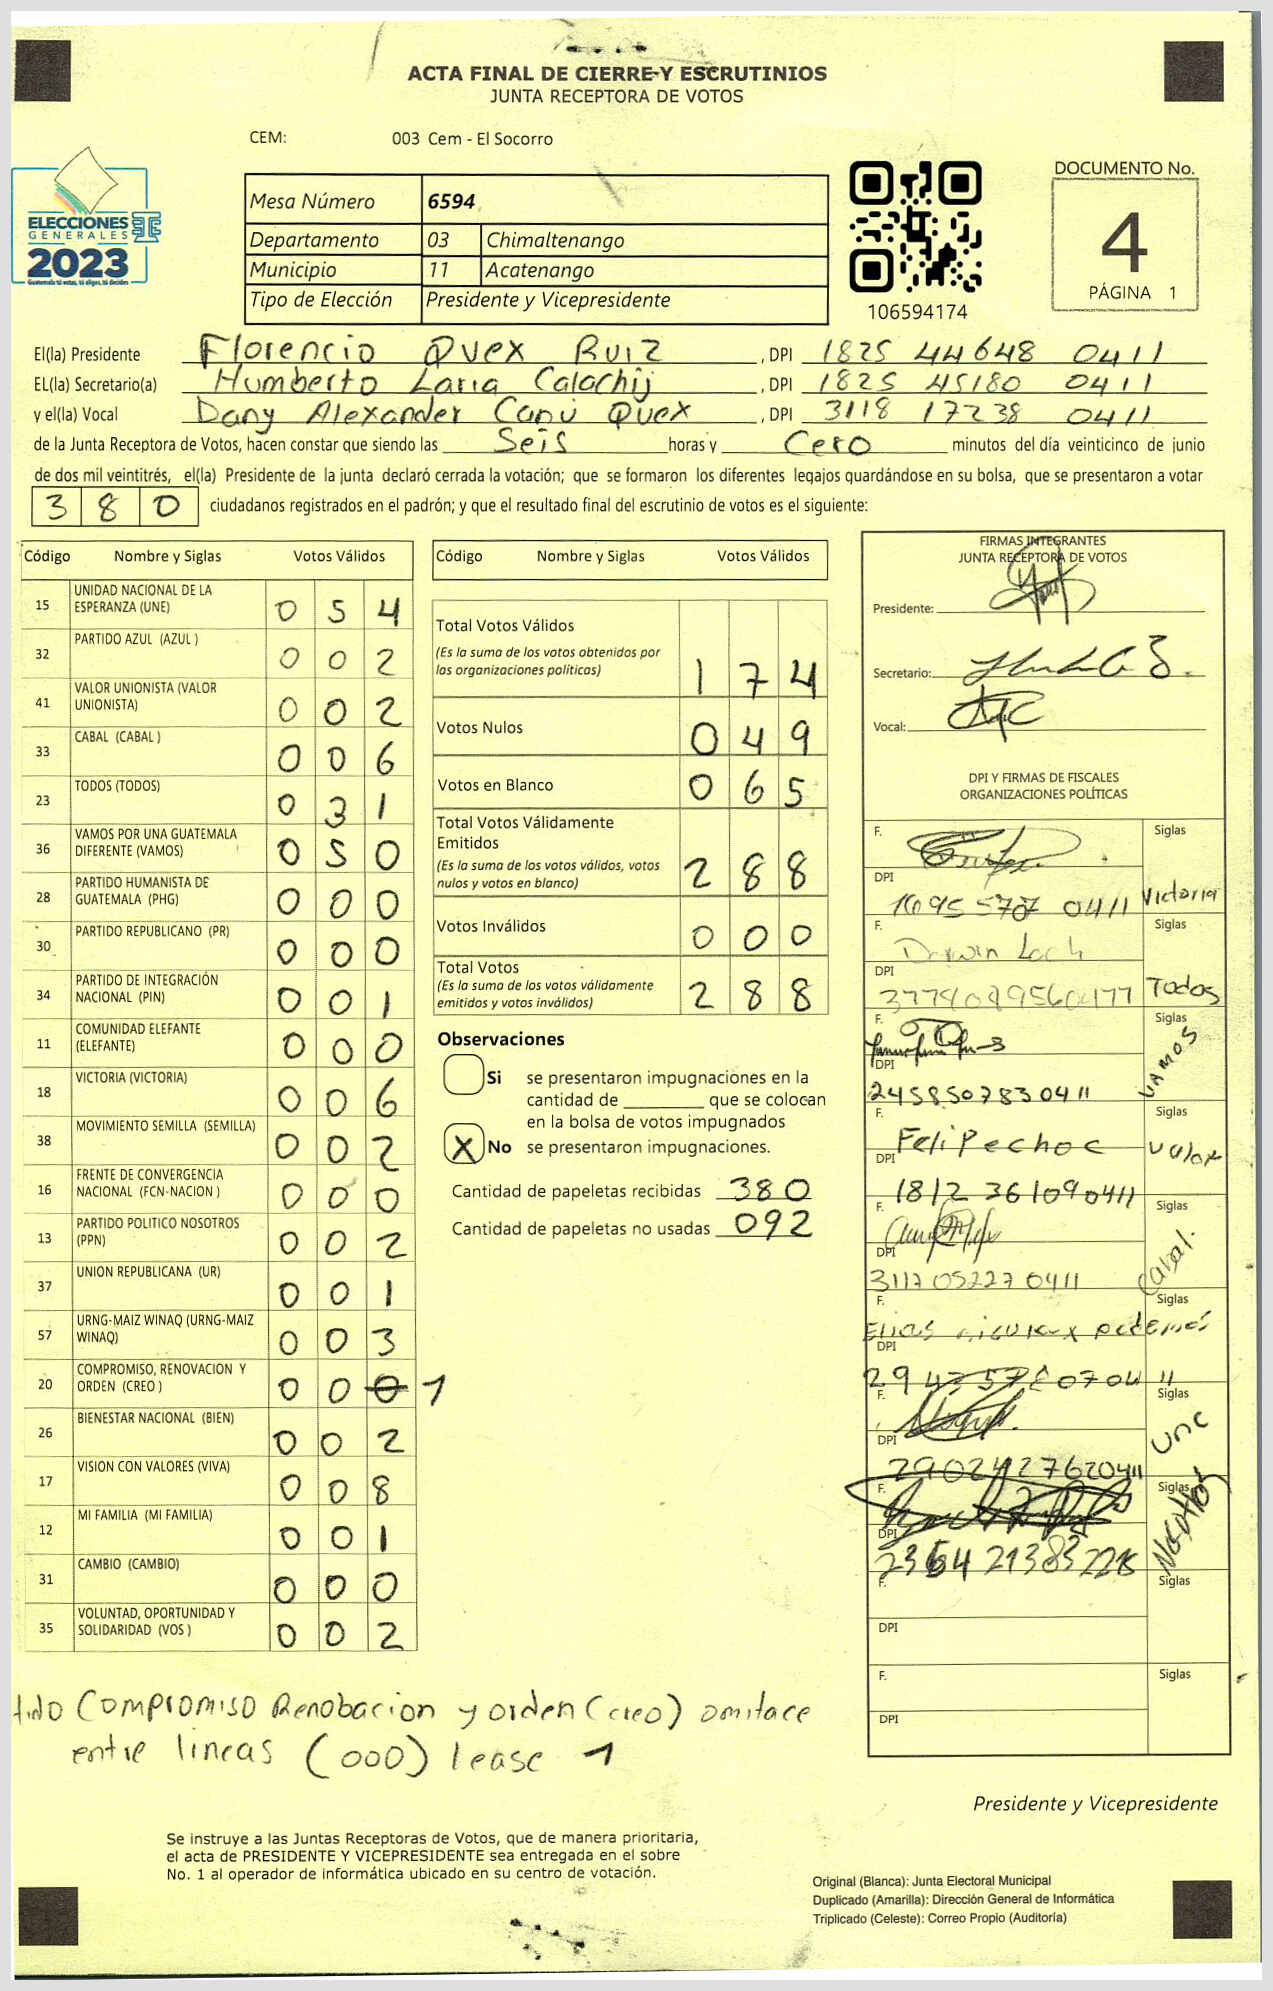 ACTA FINAL DE CIERRE Y ESCRUTINIOS
JUNTA RECEPTORA DE VOTOS
CEM: 003 Cem - El Socorro
ELECCIONES
GENERALES
2023
Guatemala tú votas, tú eliges, tú decides
Mesa Número 6594
Departamento 03 Chimaltenango
Municipio 11 Acatenango
Tipo de Elección Presidente y Vicepresidente
106594174
DOCUMENTO No.
4
PÁGINA 1
El(la) Presidente Florencio Quex Ruiz , DPI 1825 44648 0411
EL(la) Secretario(a) Humberto Laria Calachij , DPI 1825 45180 0411
y el(la) Vocal Dany Alexander Canú Quex , DPI 3118 17238 0411
de la Junta Receptora de Votos, hacen constar que siendo las Seis horas y Cero minutos del día veinticinco de junio
de dos mil veintitrés, el(la) Presidente de la junta declaró cerrada la votación; que se formaron los diferentes legajos guardándose en su bolsa, que se presentaron a votar
380 ciudadanos registrados en el padrón; y que el resultado final del escrutinio de votos es el siguiente:
Código Nombre y Siglas Votos Válidos
15 UNIDAD NACIONAL DE LA ESPERANZA (UNE) 0 5 4
32 PARTIDO AZUL (AZUL ) 0 0 2
41 VALOR UNIONISTA (VALOR UNIONISTA) 0 0 2
33 CABAL (CABAL ) 0 0 6
23 TODOS (TODOS) 0 3 1
36 VAMOS POR UNA GUATEMALA DIFERENTE (VAMOS) 0 5 0
28 PARTIDO HUMANISTA DE GUATEMALA (PHG) 0 0 0
30 PARTIDO REPUBLICANO (PR) 0 0 0
34 PARTIDO DE INTEGRACIÓN NACIONAL (PIN) 0 0 1
11 COMUNIDAD ELEFANTE (ELEFANTE) 0 0 0
18 VICTORIA (VICTORIA) 0 0 6
38 MOVIMIENTO SEMILLA (SEMILLA) 0 0 2
16 FRENTE DE CONVERGENCIA NACIONAL (FCN-NACION ) 0 0 0
13 PARTIDO POLITICO NOSOTROS (PPN) 0 0 2
37 UNION REPUBLICANA (UR) 0 0 1
57 URNG-MAIZ WINAQ (URNG-MAIZ WINAQ) 0 0 3
20 COMPROMISO, RENOVACION Y ORDEN (CREO) 0 0 0 1
26 BIENESTAR NACIONAL (BIEN) 0 0 2
17 VISION CON VALORES (VIVA) 0 0 8
12 MI FAMILIA (MI FAMILIA) 0 0 1
31 CAMBIO (CAMBIO) 0 0 0
35 VOLUNTAD, OPORTUNIDAD Y SOLIDARIDAD (VOS ) 0 0 2
Código Nombre y Siglas Votos Válidos
Total Votos Válidos
(Es la suma de los votos obtenidos por
las organizaciones políticas) 1 7 4
Votos Nulos 0 4 9
Votos en Blanco 0 6 5
Total Votos Válidamente
Emitidos
(Es la suma de los votos válidos, votos
nulos y votos en blanco) 2 8 8
Votos Inválidos 0 0 0
Total Votos
(Es la suma de los votos válidamente
emitidos y votos inválidos) 2 8 8
Observaciones
Si se presentaron impugnaciones en la
cantidad de ________ que se colocan
en la bolsa de votos impugnados
X No se presentaron impugnaciones.
Cantidad de papeletas recibidas 380
Cantidad de papeletas no usadas 092
FIRMAS INTEGRANTES
JUNTA RECEPTORA DE VOTOS
Presidente:
Secretario:
Vocal:
DPI Y FIRMAS DE FISCALES
ORGANIZACIONES POLÍTICAS
F. Siglas
DPI 0411 Victoria
F. Darwin Siglas
DPI Todos
F. Siglas
DPI 2458507830411 VAMOS
F. Felipe choc Siglas
DPI 1812 361090411 Valor
F. Siglas
DPI 3117 05227 0411 Cabal.
F. Elias podemos Siglas
DPI
F. Siglas
DPI 2902427620411 Une
F. Siglas
DPI Nosotros
F. Siglas
DPI
F. Siglas
DPI
tido Compromiso Renobacion y orden (creo) omitace
entre lineas (000) lease 1
Presidente y Vicepresidente
Se instruye a las Juntas Receptoras de Votos, que de manera prioritaria,
el acta de PRESIDENTE Y VICEPRESIDENTE sea entregada en el sobre
No. 1 al operador de informática ubicado en su centro de votación.
Original (Blanca): Junta Electoral Municipal
Duplicado (Amarilla): Dirección General de Informática
Triplicado (Celeste): Correo Propio (Auditoría)